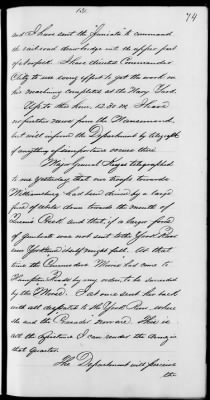 131
74
and I have sent the Juniata to command
the railroad drawbridge and the upper part
of Norfolk. I have directed Commander
to use every effort to get the work on
his machinery completed at the Navy Yard.
Up to this hour, 12.30 M. I have
no further news from the Nansemond,
but will inform the Department by telegraph
if anything of importance occurs there
Major General Keyes telegraphed
to me yesterday that our troops towards
Williamsburg had been driven by a large
force of rebels down towards the mouth of
Queen's Creek and that, if a larger force
of Gunboats was not sent to the York River
our Yorktown itself might fall. At that
time the Commodore Morris had come to
Hampton Roads by my order, to be succeeded
by the Mound. I at once sent her back
with all despatch to the York River, where
she and the Crusader now are. This is
all the assistance I can render the Army in
that quarter.
The Department will perceive
the